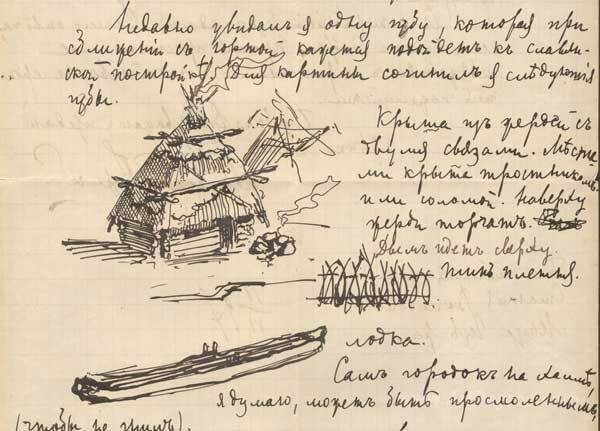 Недавно увидалъ я одну избу, которая при
сближеніи съ юртой кажется подойдетъ къ славян-
ской постройкѣ. Для картины сочинилъ я слѣдующія
избы.
Крыша изъ жердей съ
двумя связами. Мѣста-
ми крыта тростникомъ
или соломой. Наверху
жерди торчатъ.
Дымъ идетъ сверху.
Типъ плетня.
лодка.
Самъ городокъ на холмѣ,
я думаю, можетъ быть просмоленнымъ,
(чтобы не гнилъ).